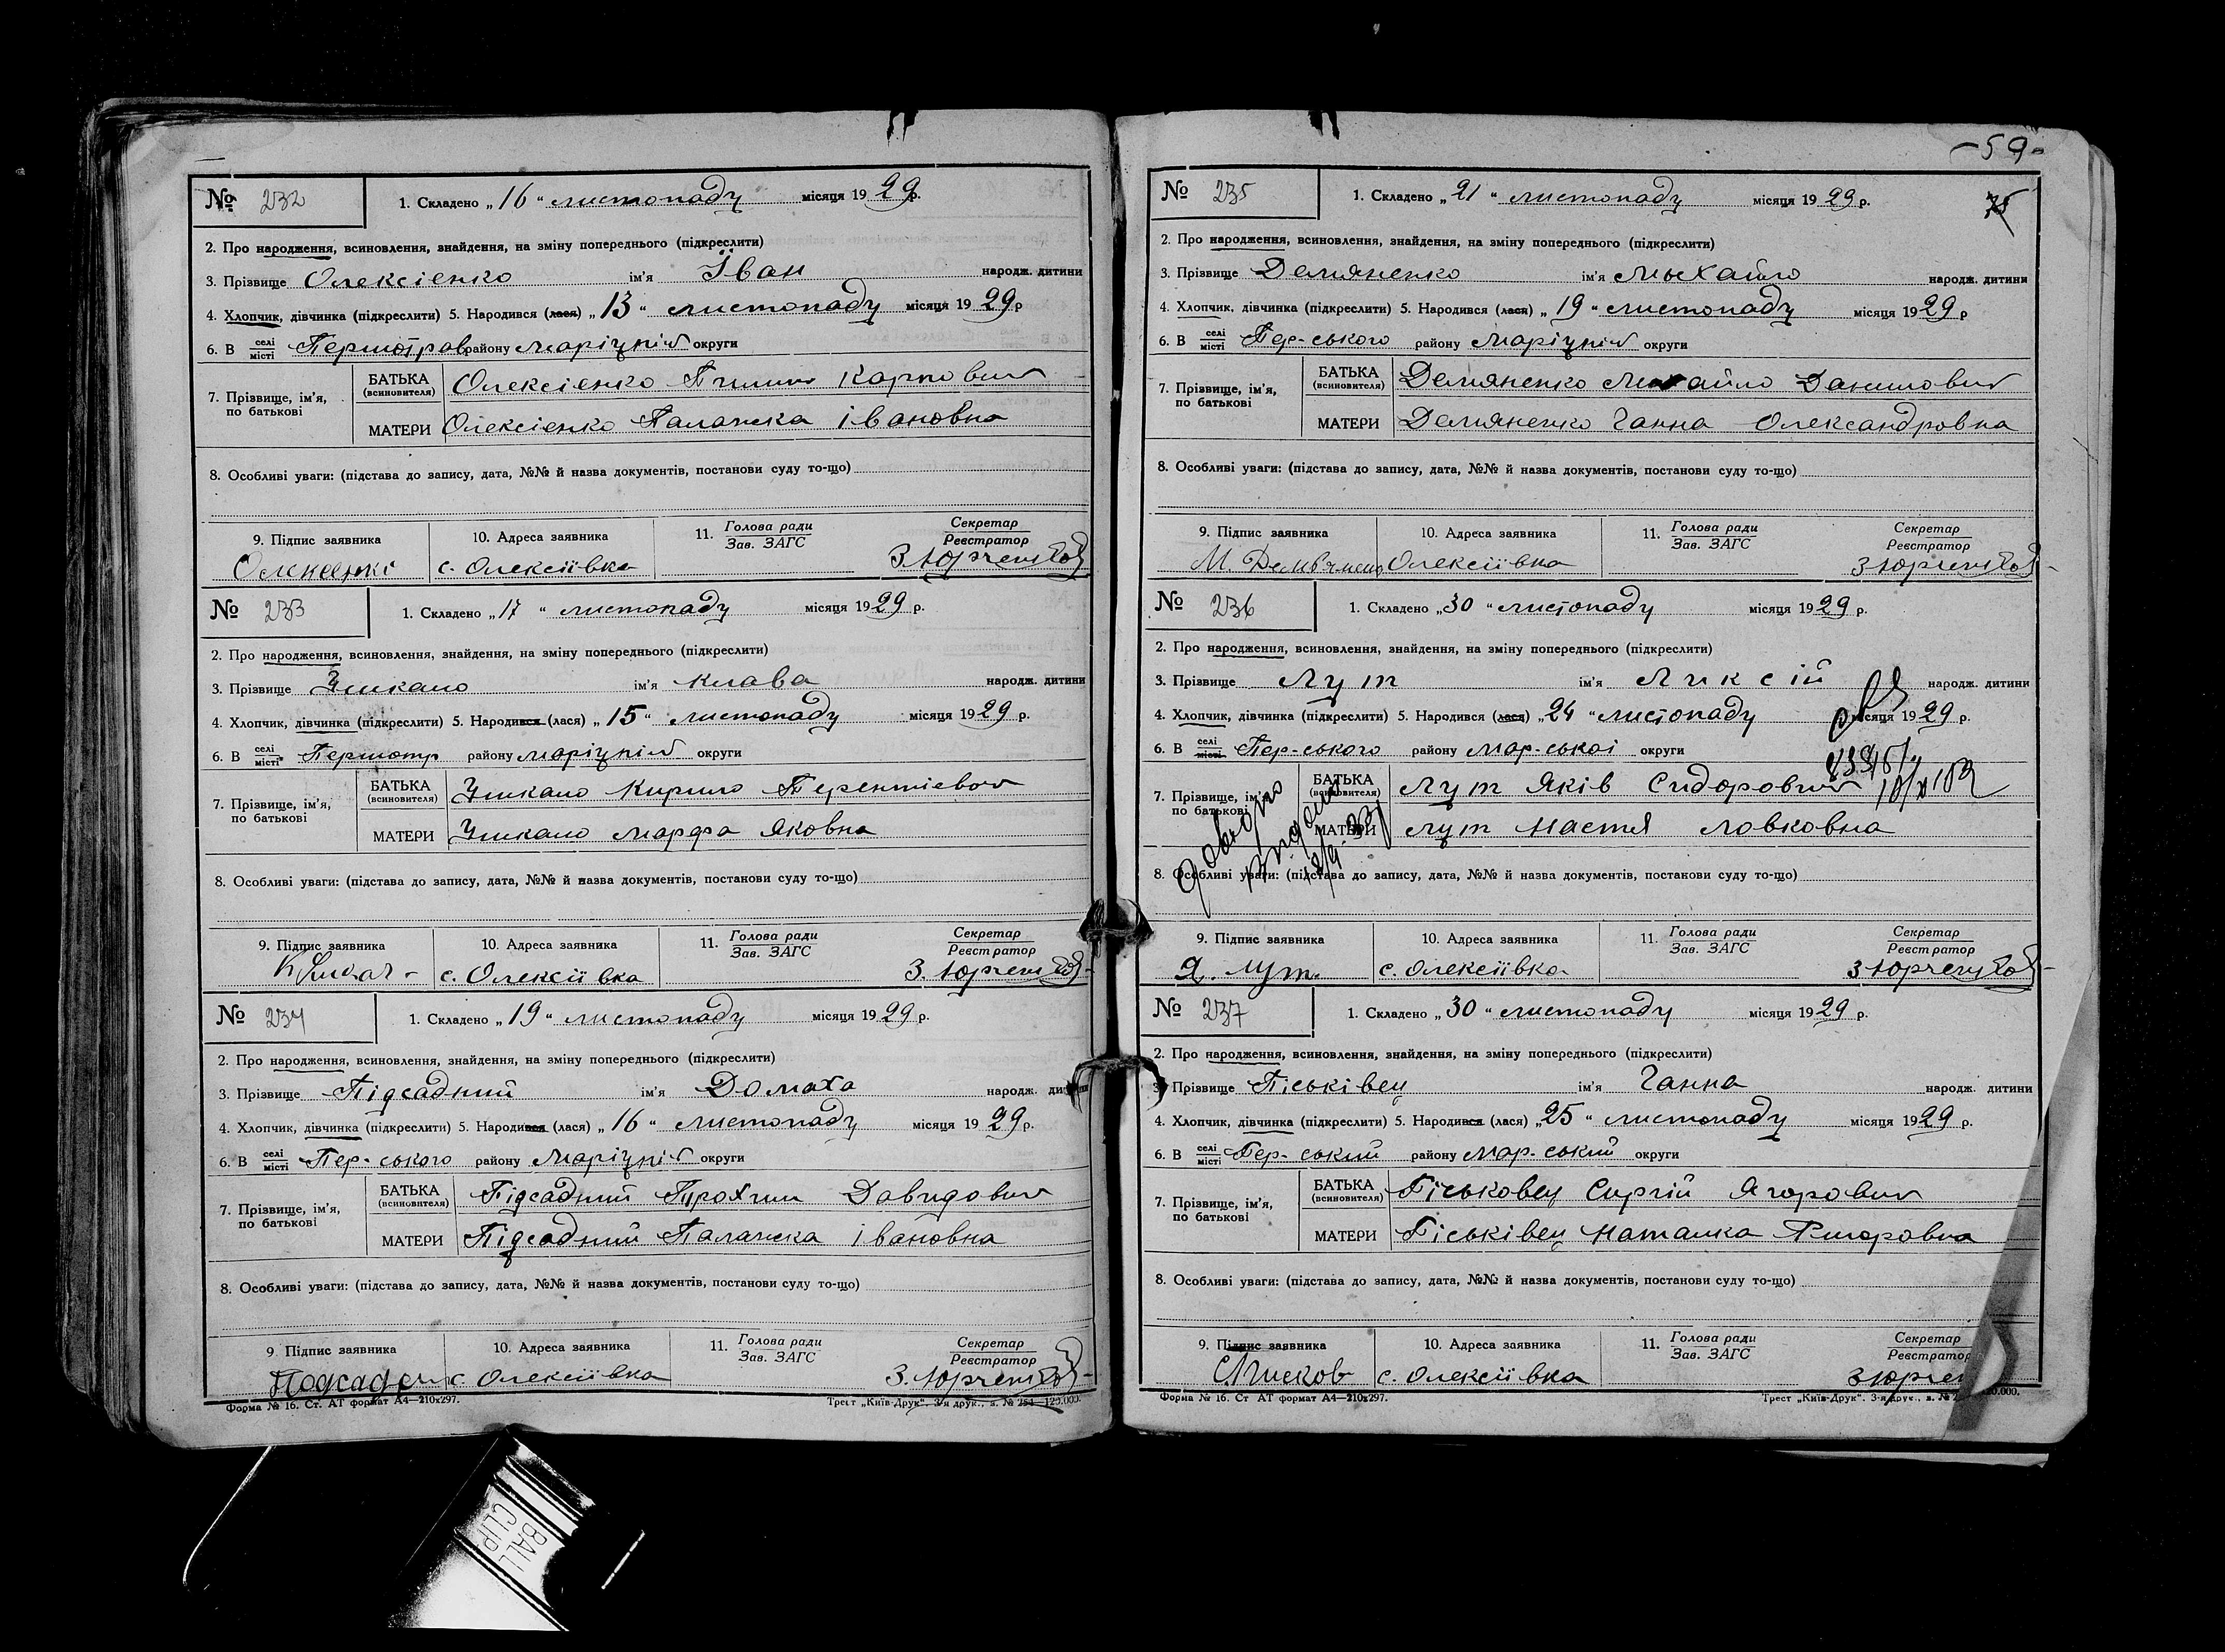 № 232 1. Складено „16" листопаду місяця 1929 р.
2. Про народження, всиновлення, знайдення, на зміну попереднього (підкреслити)
3. Прізвище Олексіенко ім'я Іван народж. дитини
4. Хлопчик, дівчинка (підкреслити) 5. Народився (лася) „13" листопаду місяця 1929 р
6. В селі місті району Маріупіл округи
7. Прізвище, ім'я, по батькові БАТЬКА (всиновителя) Олексіенко Карпович
МАТЕРИ Олексіенко Палажка івановна
8. Особливі уваги: (підстава до запису, дата, №№ й назва документів, постанови суду то-що)
9. Підпис заявника 10. Адреса заявника 11. Голова ради Зав. ЗАГС Секретар Реєстратор
с. Олексіівка
№ 233 1. Складено „17" листопаду місяця 1929 р.
2. Про народження, всиновлення, знайдення, на зміну попереднього (підкреслити)
3. Прізвище ім'я Клава народж. дитини
4. Хлопчик, дівчинка (підкреслити) 5. Народився (лася) „15" листопаду місяця 1929 р.
6. В селі місті Першотр району Маріупіл округи
7. Прізвище, ім'я, по батькові БАТЬКА (всиновителя) Кирило
МАТЕРИ Марфа Яковна
8. Особливі уваги: (підстава до запису, дата, №№ й назва документів, постанови суду то-що)
9. Підпис заявника 10. Адреса заявника 11. Голова ради Зав. ЗАГС Секретар Реєстратор
с. Олексіівка
№ 234 1. Складено „19" листопаду місяця 1929 р.
2. Про народження, всиновлення, знайдення, на зміну попереднього (підкреслити)
3. Прізвище Підсадний ім'я Домаха народж. дитини
4. Хлопчик, дівчинка (підкреслити) 5. Народився (лася) „16" листопаду місяця 1929 р.
6. В селі місті Пер-ського району Маріупіл округи
7. Прізвище, ім'я, по батькові БАТЬКА (всиновителя) Підсадний Прохим Давидович
МАТЕРИ Підсадний Палажка івановна
8. Особливі уваги: (підстава до запису, дата, №№ й назва документів, постанови суду то-що)
9. Підпис заявника 10. Адреса заявника 11. Голова ради Зав. ЗАГС Секретар Реєстратор
с. Олексіівка
Форма № 16. Ст. АТ формат А4—210х297. Трест „Київ-Друк". 3-я друк., з. № 251—120.000.
-59-
№ 235 1. Складено „21" листопаду місяця 1929 р.
75
2. Про народження, всиновлення, знайдення, на зміну попереднього (підкреслити)
3. Прізвище Демяненко ім'я Мыхайло народж. дитини
4. Хлопчик, дівчинка (підкреслити) 5. Народився (лася) „19" листопаду місяця 1929 р
6. В селі місті Пер-ського району Маріупіл округи
7. Прізвище, ім'я, по батькові БАТЬКА (всиновителя) Демяненко Михайло Данилович
МАТЕРИ Демяненко Ганна Олександровна
8. Особливі уваги: (підстава до запису, дата, №№ й назва документів, постанови суду то-що)
9. Підпис заявника 10. Адреса заявника 11. Голова ради Зав. ЗАГС Секретар Реєстратор
Олексіівка
№ 236 1. Складено „30" листопаду місяця 1929 р.
2. Про народження, всиновлення, знайдення, на зміну попереднього (підкреслити)
3. Прізвище Лут ім'я Ликсій народж. дитини
4. Хлопчик, дівчинка (підкреслити) 5. Народився (лася) „24" листопаду місяця 1929 р.
6. В селі місті Пер-ського району Мар-ськоі округи
7. Прізвище, ім'я, по батькові БАТЬКА (всиновителя) Лут Яків Сидорович
МАТЕРИ Лут Настя
8. Особливі уваги: (підстава до запису, дата, №№ й назва документів, постанови суду то-що)
9. Підпис заявника 10. Адреса заявника 11. Голова ради Зав. ЗАГС Секретар Реєстратор
Я. Лут. с. Олексіівка
№ 237 1. Складено „30" листопаду місяця 1929 р.
2. Про народження, всиновлення, знайдення, на зміну попереднього (підкреслити)
3. Прізвище Піськівец ім'я Ганна народж. дитини
4. Хлопчик, дівчинка (підкреслити) 5. Народився (лася) „25" листопаду місяця 1929 р.
6. В селі місті Пер-ський району Мар-ський округи
7. Прізвище, ім'я, по батькові БАТЬКА (всиновителя) Піськовец Сиргій Ягорович
МАТЕРИ Піськівец Наталка
8. Особливі уваги: (підстава до запису, дата, №№ й назва документів, постанови суду то-що)
9. Підпис заявника 10. Адреса заявника 11. Голова ради Зав. ЗАГС Секретар Реєстратор
с. Олексіівка
Форма № 16. Ст АТ формат А4—210х297. Трест „Київ-Друк". 3-я друк., з. №
BALL CLIP